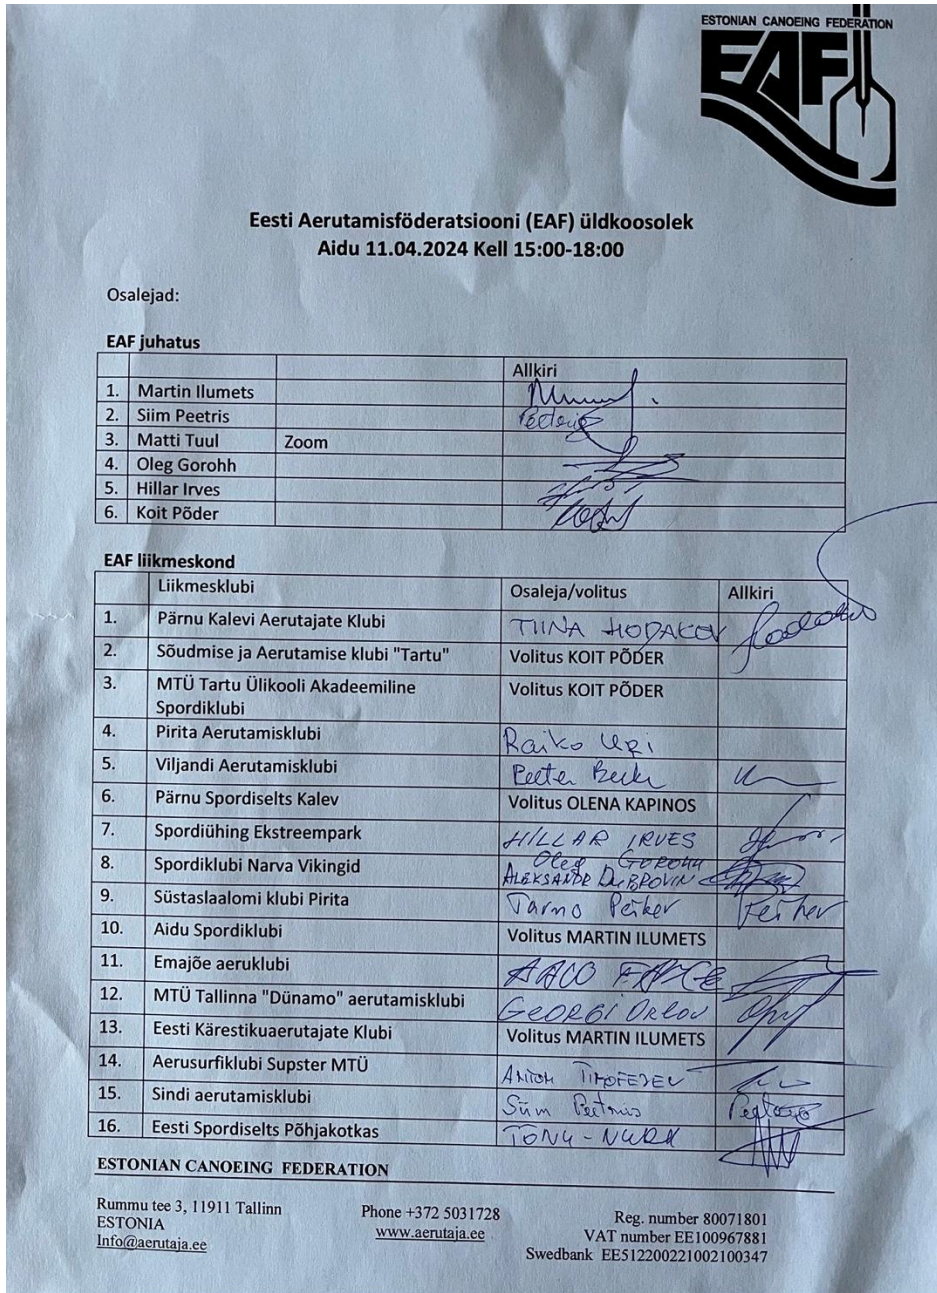 ESTONIAN CANOEING FEDERATION
EAF
Eesti Aerutamisföderatsiooni (EAF) üldkoosolek
Aidu 11.04.2024 Kell 15:00-18:00
Osalejad:
EAF juhatus
Allkiri
1. Martin Ilumets
2. Siim Peetris
3. Matti Tuul Zoom
4. Oleg Gorohh
5. Hillar Irves
6. Koit Põder
EAF liikmeskond
Liikmesklubi Osaleja/volitus Allkiri
1. Pärnu Kalevi Aerutajate Klubi TIINA HODAKOV
2. Sõudmise ja Aerutamise klubi "Tartu" Volitus KOIT PÕDER
3. MTÜ Tartu Ülikooli Akadeemiline Volitus KOIT PÕDER
Spordiklubi
4. Pirita Aerutamisklubi Raiko
5. Viljandi Aerutamisklubi Peeter
6. Pärnu Spordiselts Kalev Volitus OLENA KAPINOS
7. Spordiühing Ekstreempark HILLAR IRVES
Oleg
8. Spordiklubi Narva Vikingid ALEKSANDR DUBROVIN
9. Süstaslaalomi klubi Pirita Tarmo Peiker
10. Aidu Spordiklubi Volitus MARTIN ILUMETS
11. Emajõe aeruklubi
12. MTÜ Tallinna "Dünamo" aerutamisklubi GEORGI ORLOV
13. Eesti Kärestikuaerutajate Klubi Volitus MARTIN ILUMETS
14. Aerusurfiklubi Supster MTÜ ANTON
15. Sindi aerutamisklubi Siim Peetris
16. Eesti Spordiselts Põhjakotkas
ESTONIAN CANOEING FEDERATION
Rummu tee 3, 11911 Tallinn Phone +372 5031728 Reg. number 80071801
ESTONIA www.aerutaja.ee VAT number EE100967881
Info@aerutaja.ee Swedbank EE512200221002100347